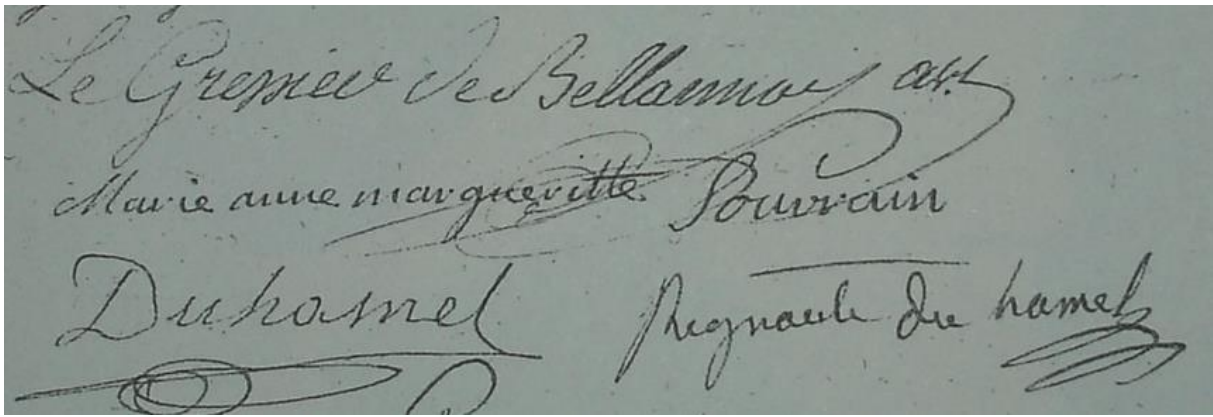 Le Gressier de Bellannoy
Marie anne margueritte Souvrain
Duhamel Regnault du hamel